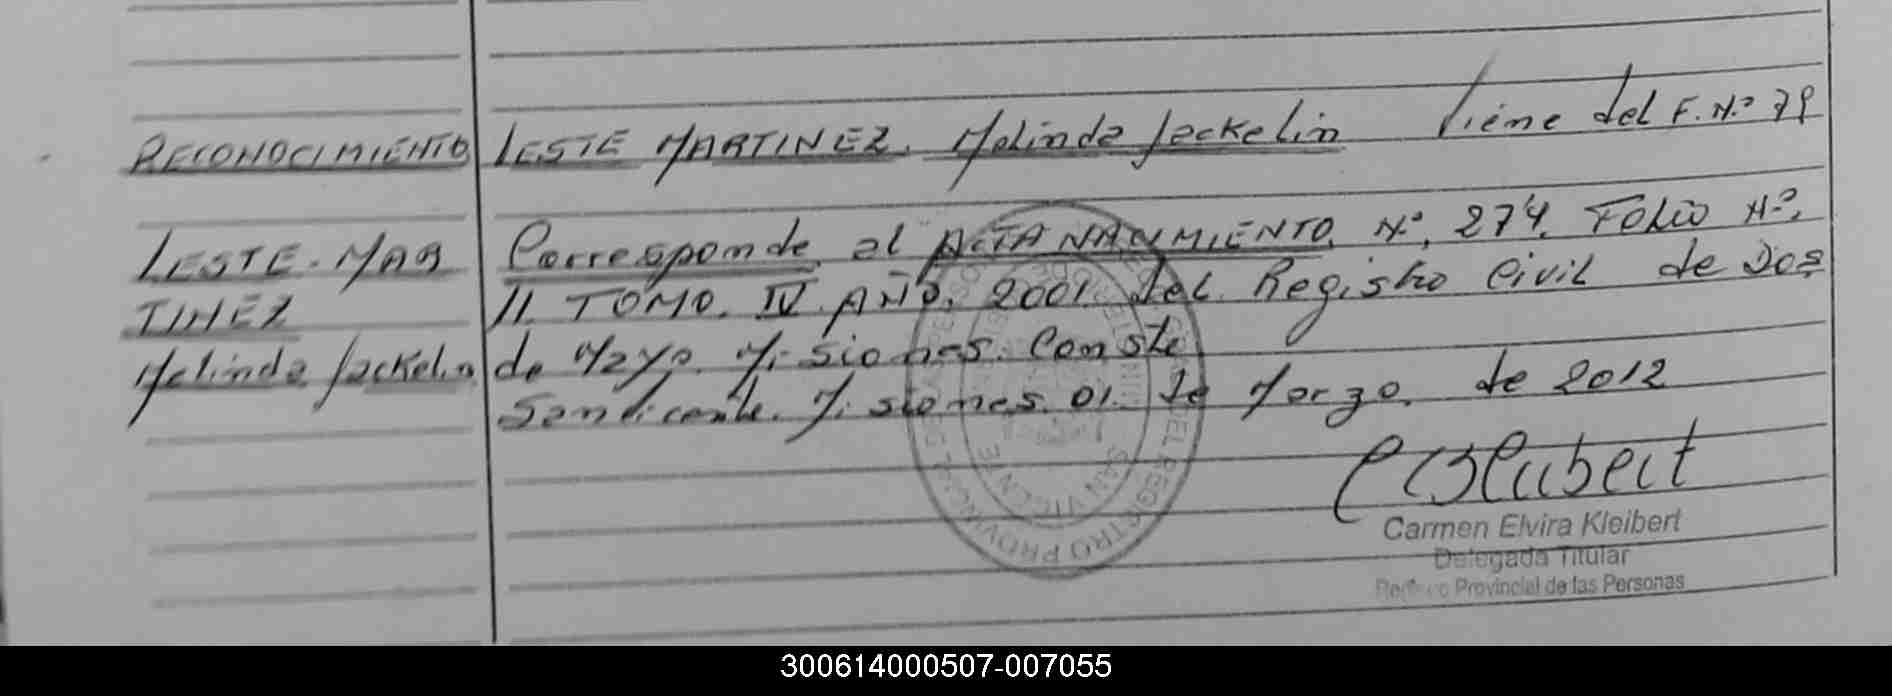 RECONOCIMIENTO
LESTE MARTINEZ. Melinda Jackelin Viene del F. Nº 79
LESTE - MAR
TINEZ
Melinda Jackelin
Corresponde al ACTA NACIMIENTO. Nº. 274. FOLIO Nº.
11. TOMO. IV. AÑO. 2001. del. Registro Civil de Dos
de Mayo. Misiones. Conste
San Vicente. Misiones. 01. de Marzo. de 2012
Carmen Elvira Kleibert
Delegada Titular
Registro Provincial de las Personas
REGISTRO PROVINCIAL DE LAS PERSONAS
SAN VICENTE
300614000507-007055